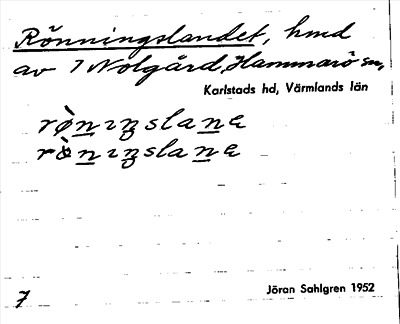 Rönningslandet, hmd
av 7 Nolgård, Hammarö sn,
Karlstads hd, Värmlands län
rø̀nıŋslane
rònıŋslane
7
Jöran Sahlgren 1952